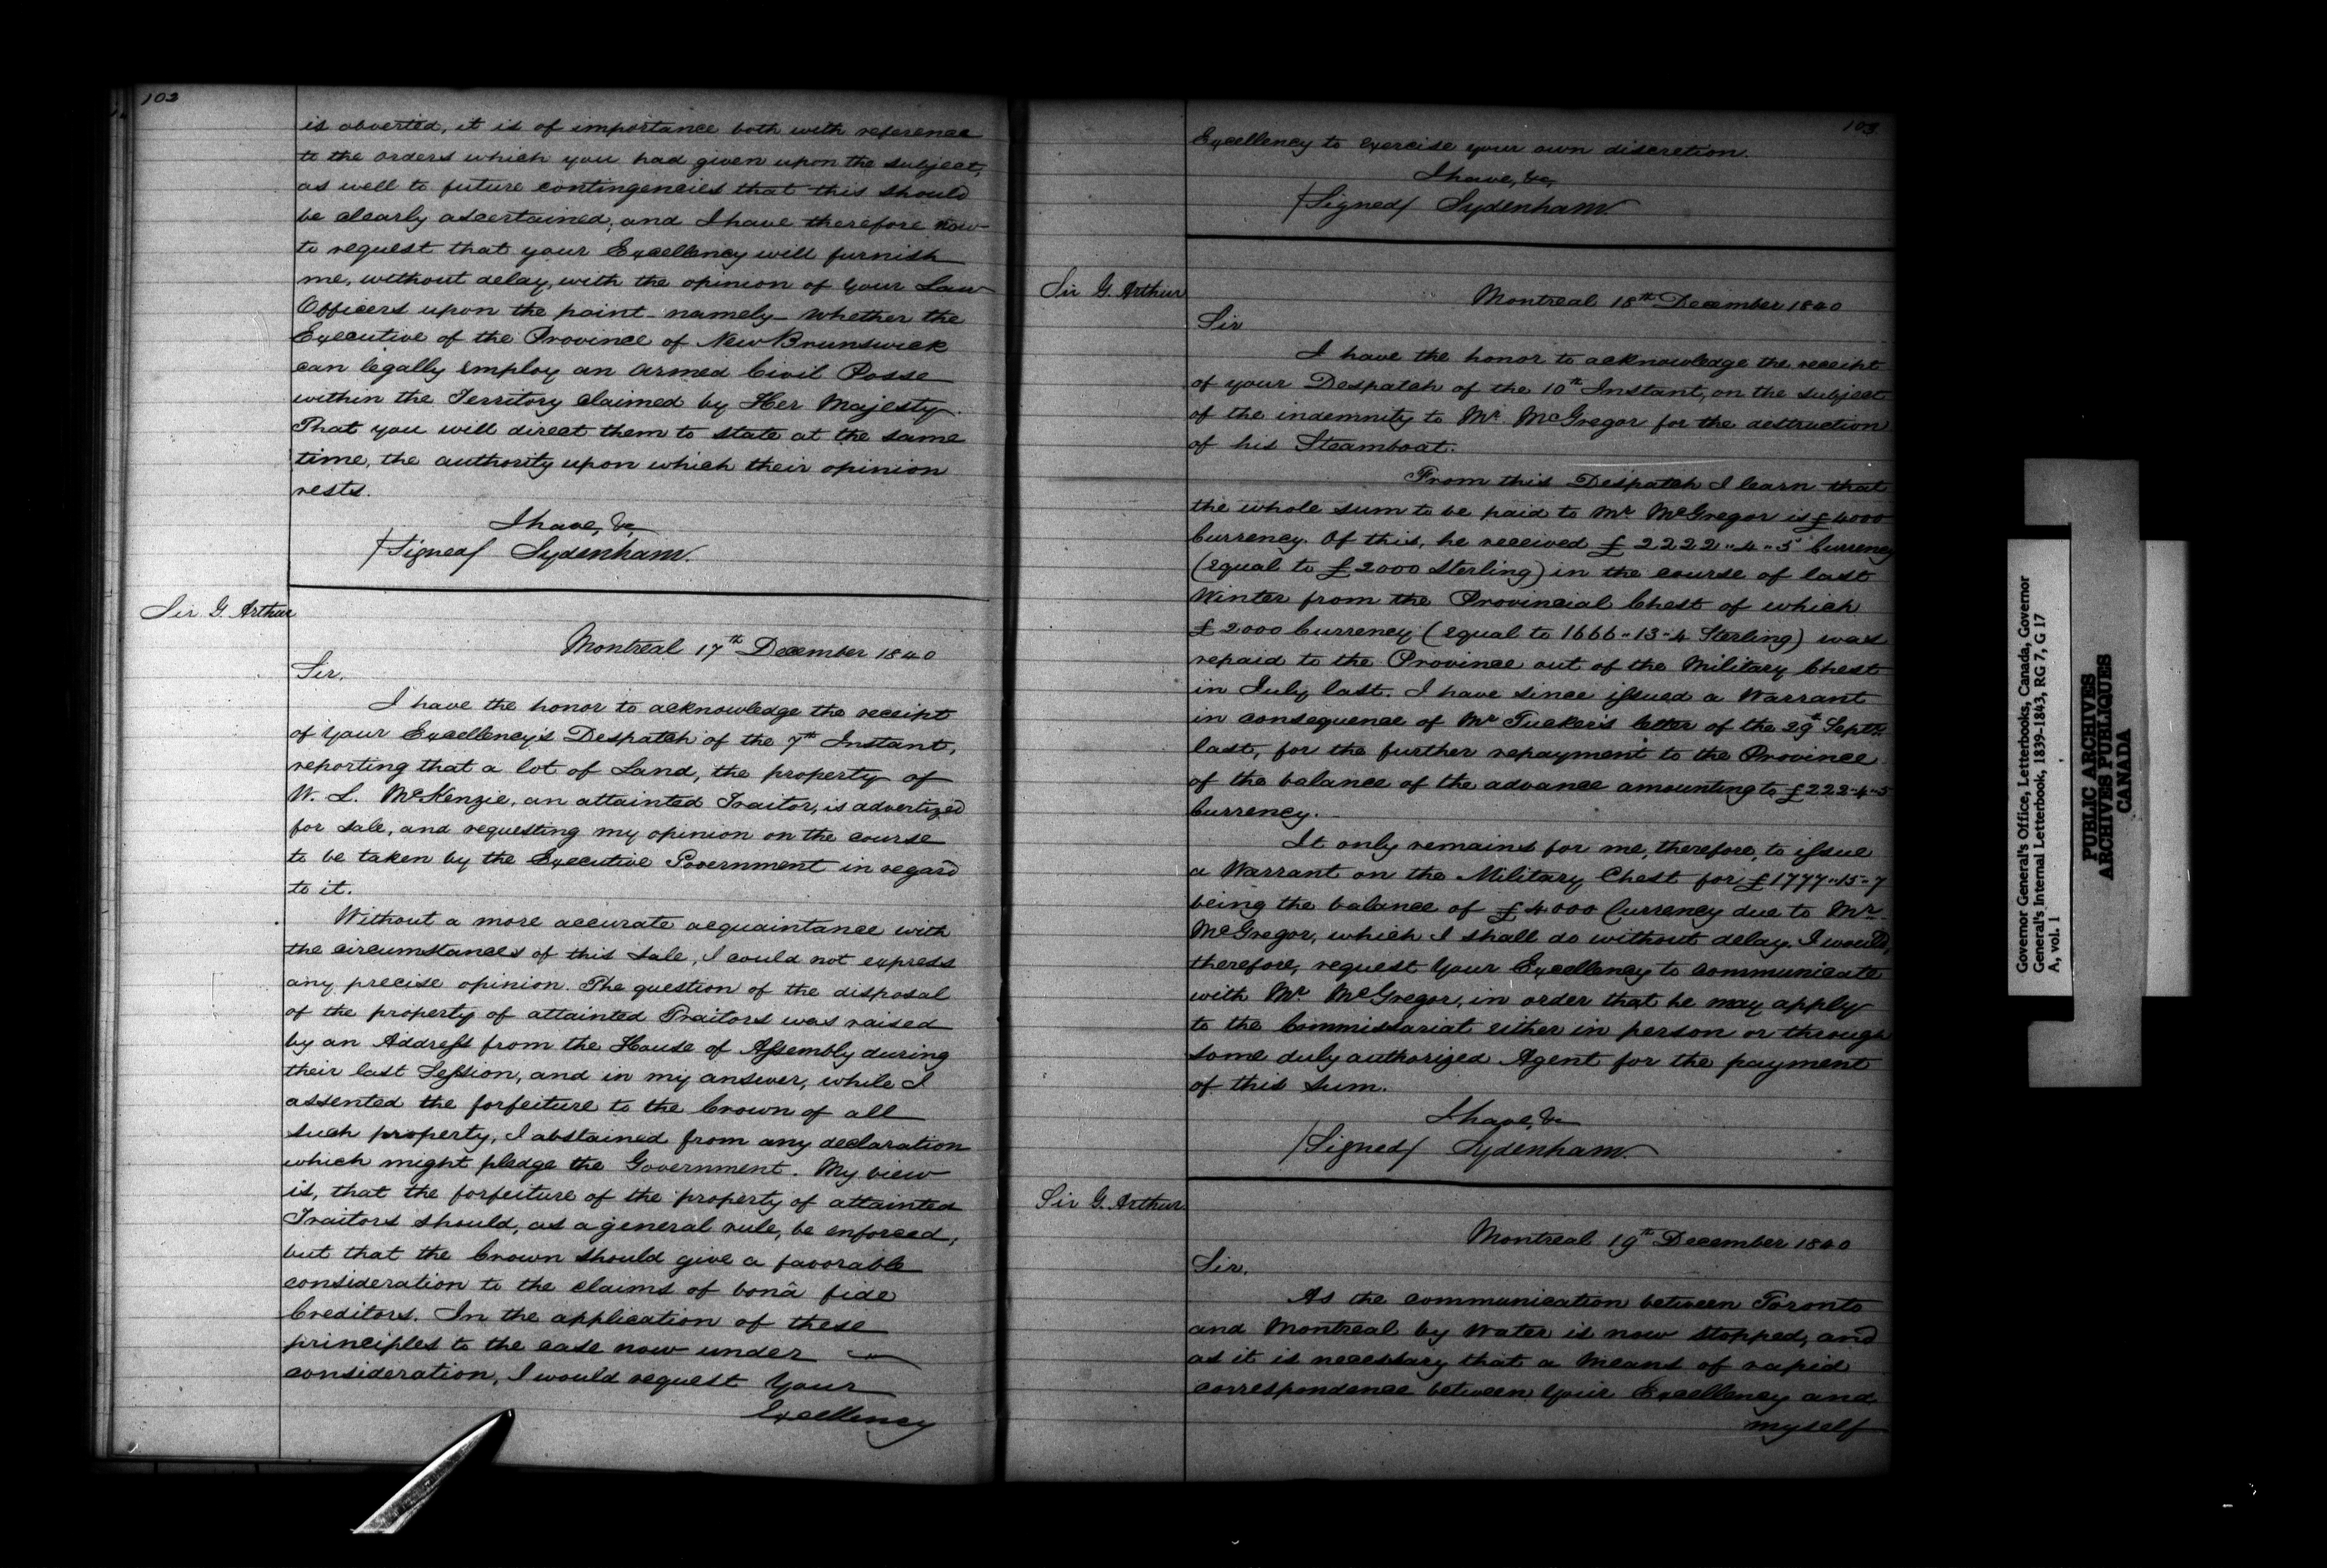 102
is averted, it is of importance both with reference
to the orders which you had given upon the subject,
as well to future contingencies that this should
be clearly ascertained; and I have therefore now
to request that your Excellency will furnish
me, without delay, with the opinion of your Law
Officers upon the point - namely - whether the
Executive of the Province of New Brunswick
can legally employ an armed Civil Posse
within the Territory claimed by Her Majesty.
That you will direct them to state at the same
time, the authority upon which their opinion
rests.
I have, &c,
/Signed/ Sydenham.
Sir G. Arthur
Montreal 17th December 1840
Sir,
I have the honor to acknowledge the receipt
of your Excellency's Despatch of the 7th Instant,
reporting that a lot of Land, the property of
W. L. McKenzie, an attainted Traitor, is advertized
for sale, and requesting my opinion on the course
to be taken by the Executive Government in regard
to it.
Without a more accurate acquaintance with
the circumstances of this sale, I could not express
any precise opinion. The question of the disposal
of the property of attainted Traitors was raised
by an Address from the House of Assembly during
their last Session, and in my answer, while I
assented the forfeiture to the Crown of all
such property, I abstained from any declaration
which might pledge the Government. My view
is, that the forfeiture of the property of attainted
Traitors should, as a general rule, be enforced,
but that the Crown should give a favorable
consideration to the claims of bonâ fide
Creditors. In the application of these
principles to the case now under
consideration, I would request Your
Excellency
103
Excellency to exercise your own discretion.
I have, &c,
/Signed/ Sydenham.
Sir G. Arthur
Montreal 18th December 1840
Sir
I have the honor to acknowledge the receipt
of your Despatch of the 10th Instant, on the subject
of the indemnity to Mr. McGregor for the destruction
of his Steamboat.
From this Despatch I learn that
the whole sum to be paid to Mr McGregor is £4000
Currency. Of this, he received £2222"4"5 Currency
(equal to £2000 Sterling) in the course of last
Winter from the Provincial Chest of which
£2000 Currency (equal to 1666"13"4 Sterling) was
repaid to the Province out of the Military Chest
in July last. I have since issued a Warrant
in consequence of Mr Tucker's letter of the 29th Septr
last, for the further repayment to the Province
of the balance of the advance amounting to £222-4-5
Currency.
It only remains for me, therefore, to issue
a Warrant on the Military Chest for £1777"15"7
being the balance of £4000 Currency due to Mr
McGregor, which I shall do without delay. I would,
therefore, request Your Excellency to communicate
with Mr McGregor, in order that he may apply
to the Commissariat either in person or through
some duly authorized Agent for the payment
of this sum.
I have, &c
/Signed/ Sydenham.
Sir G. Arthur
Montreal 19th December 1840
Sir,
As the communication between Toronto
and Montreal by water is now stopped, and
as it is necessary that a means of rapid
correspondence between Your Excellency and
myself
Governor General's Office, Letterbooks, Canada, Governor
General's Internal Letterbook, 1839-1843, RG 7, G 17
A, vol. 1
PUBLIC ARCHIVES
ARCHIVES PUBLIQUES
CANADA